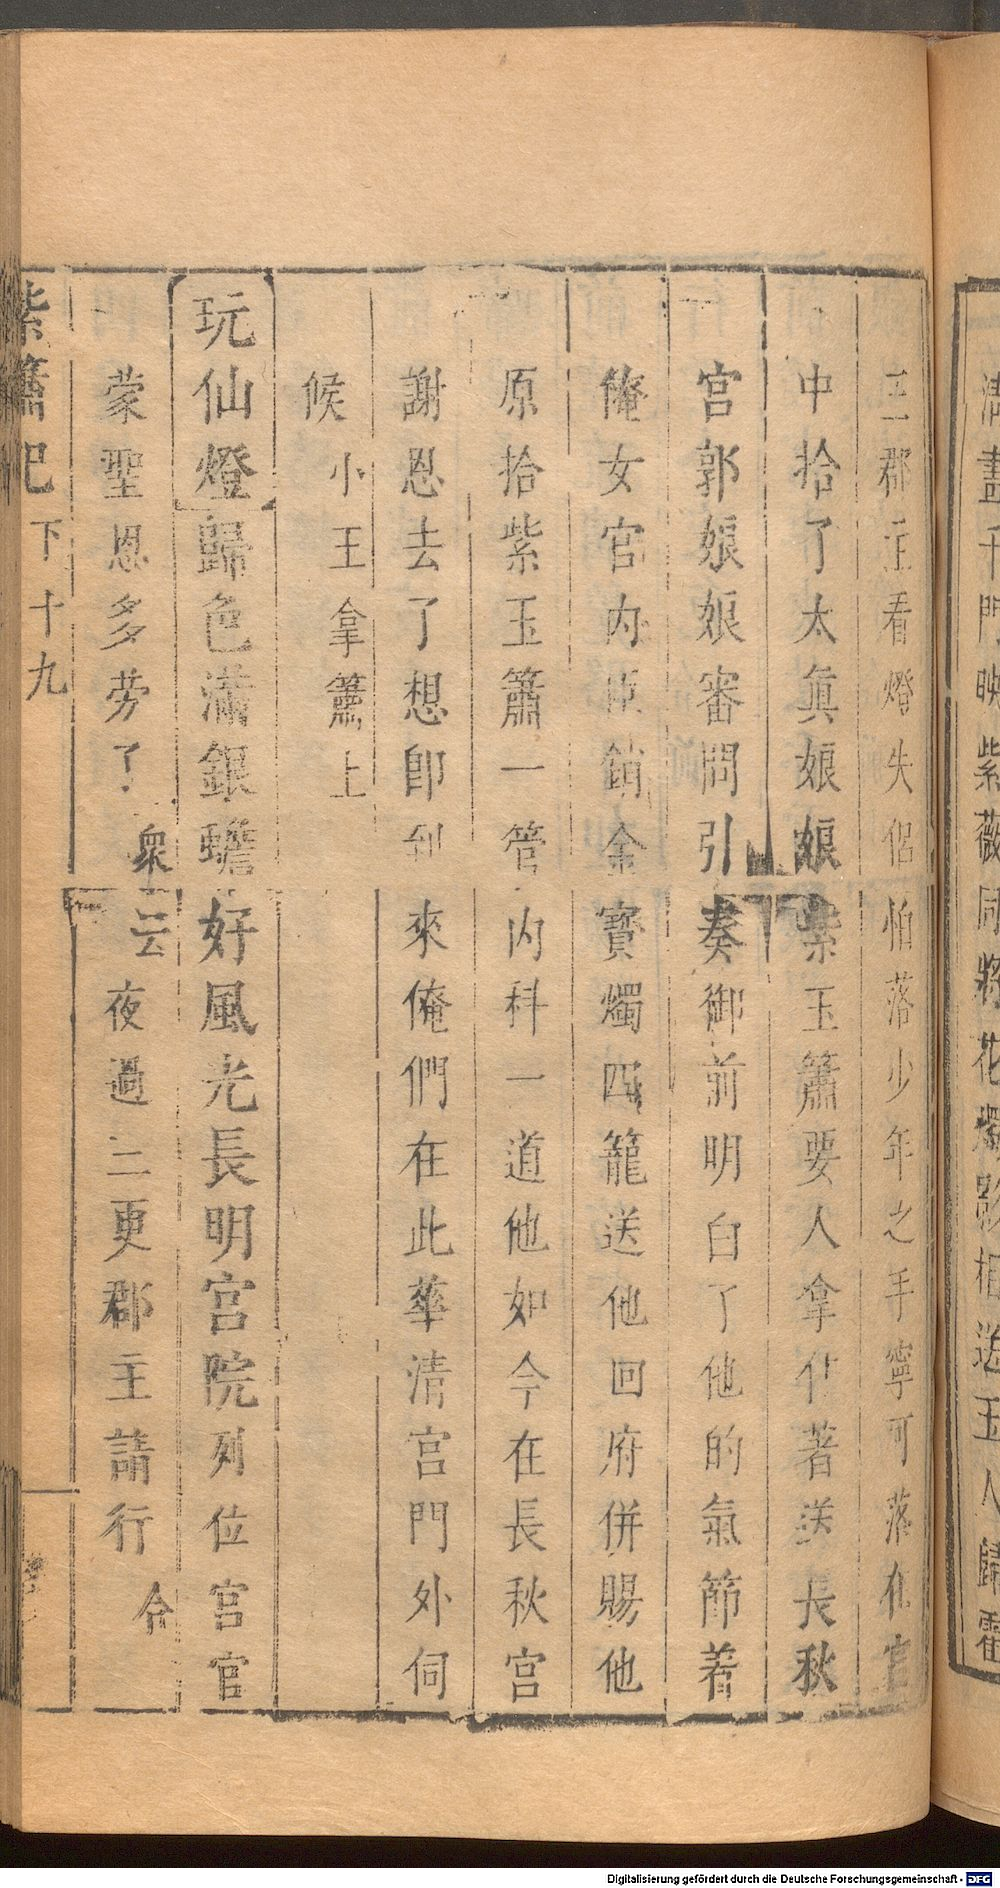 淸畫千門映紫薇同將花燭影相送玉人歸霍
王郡主看燈失侶怕落少年之手寧可落在宮
中拾了太眞娘娘紫玉簫要人拿住著送長秋
宮郭娘娘審問引奏御前明白了他的氣節着
俺女官內臣銷金寶燭四籠送他回府併賜他
原拾紫玉簫一管內科一道他如今在長秋宮
謝恩去了想卽到來俺們在此華清宮門外伺
候 小王拿簫上
玩仙燈歸色滿銀蟾好風光長明宮院列位宮官
蒙聖恩多劳了 衆云夜過二更郡主請行 合
紫簫記 下 十九
Digitalisierung gefördert durch die Deutsche Forschungsgemeinschaft - DFG